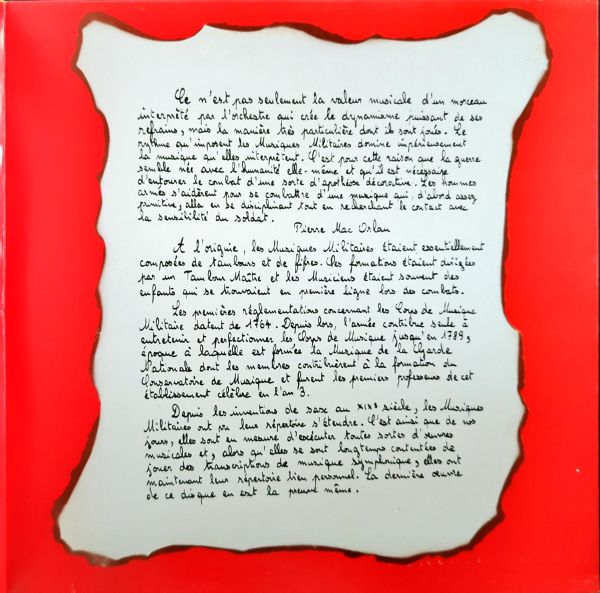 Ce n'est pas seulement la valeur musicale d'un morceau
interprèté par l'orchestre qui crée le dynamisme puissant de ses
refrains, mais la manière très particulière dont ils sont joués. Le
rythme qu'imposent les Musiques Militaires domine impérieusement
la musique qu'elles interprètent. C'est pour cette raison que la guerre
semble née avec l'humanité elle-même et qu'il est nécessaire
d'entourer le combat d'une sorte d'apothéose décorative. Les hommes
armés s'aidèrent pour se combattre d'une musique qui, d'abord assez
primitive, alla en se disciplinant tout en recherchant le contact avec
la sensibilité du soldat.
Pierre Mac Orlan
A l'origine, les Musiques Militaires étaient essentiellement
composées de tambours et de fifres. Ces formations étaient dirigées
par un Tambour Maître et les Musiciens étaient souvent des
enfants qui se trouvaient en première ligne lors des combats.
Les premières réglementations concernant les Corps de Musique
Militaire datent de 1764. Depuis lors, l'armée contribue seule à
entretenir et perfectionner les Corps de Musique jusqu'en 1789,
époque à laquelle est formée la Musique de la Garde
Nationale dont les membres contribuèrent à la formation du
Conservatoire de Musique et furent les premiers professeurs de cet
établissement célèbre en l'an 3.
Depuis les inventions de saxe au XIXe siècle, les Musiques
Militaires ont pu leur répertoire s'étendre. C'est ainsi que de nos
jours, elles sont en mesure d'exécuter toutes sortes d'œuvres
musicales et, alors qu'elles se sont longtemps contentées de
jouer des transcriptions de musique symphonique, elles ont
maintenant leur répertoire bien personnel. La dernière œuvre
de ce disque en est la preuve même.